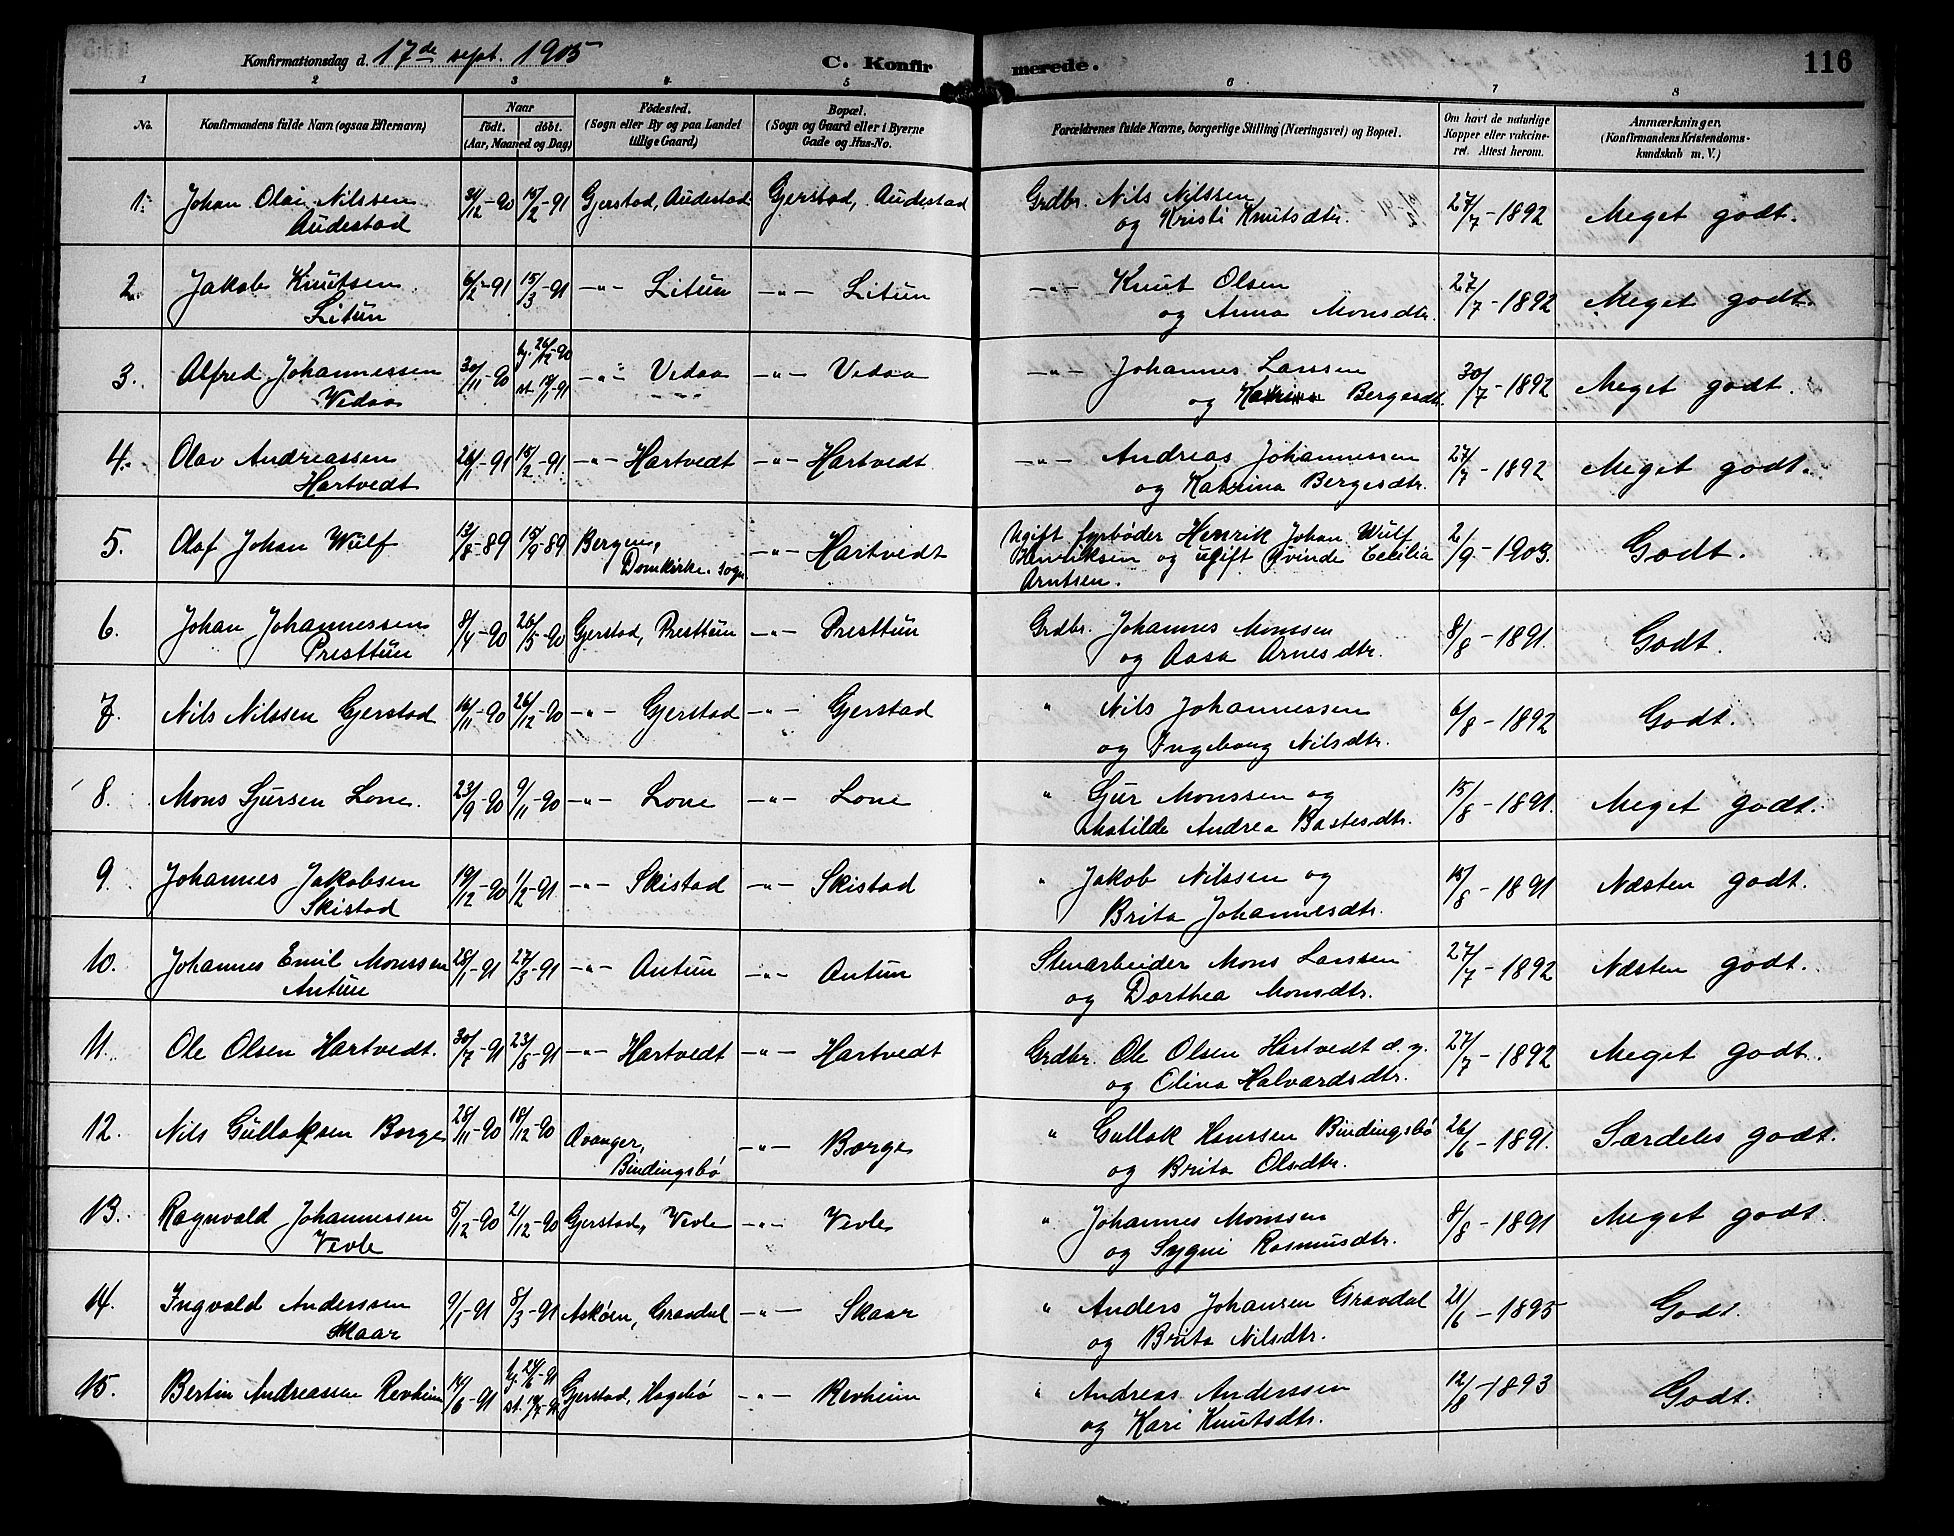 Konfirmationsdag d. 17de sept. 1905
C. Konfirmerede.
116
1 2 3 4 5 6 7 8
No.
Konfirmandens fulde Navn (ogsaa Efternavn)
Naar
födt. döbt.
(Aar, Maaned og Dag)
Födested.
(Sogn eller By og paa Landet
tillige Gaard)
Bopæl.
(Sogn og Gaard eller i Byerne
Gade og Hus-No.
Forældrenes fulde Navne, borgerlige Stilling (Næringsvei) og Bopæl.
Om havt de naturlige
Kopper eller vakcine-
ret. Attest herom.
Anmærkninger.
(Konfirmandens Kristendoms-
kundskab m. V.)
1. Johan Olai Nilssen 31/12-90 15/2-91 Gjerstad, Audestad Gjerstad, Audestad Grdbr. Nils Nilssen 27/7-1892 Meget godt.
Audestad og Kristi Knutsdtr.
2. Jakob Knutsen 6/2-91 15/3-91 -"- Litun -"- Litun -"- Knut Olsen 27/7-1892 Meget godt.
Litun og Anna Monsdtr.
3. Alfred Johannessen 30/11-90 hj. 26/12-90 -"- Vedaa -"- Vedaa -"- Johannes Larssen 30/7-1892 Meget godt.
Vedaa st. /1-91 og Bergesdtr.
4. Olav Andreassen 15/2-91. -"- Hartvedt -"- Hartvedt -"- Andreas Johannessen 27/7-1892 Meget godt.
Hartvedt og Katrina Bergesdtr.
5. Olaf Johan Wulf 13/8-89 15/9-89 Bergen, -"- Hartvedt Ugift fyrbøder Henrik Johan Wulf 2/9-1903. Godt.
Domkirke sogn Henriksen og ugift kvinde Cecilia
Arntsen.
6. Johan Johannessen 8/4-90 26/5-90 Gjerstad, Presttun -"- Presttun Grdbr. Johannes Monssen 8/8-1891. Godt.
Presttun og Aasa Arnesdtr.
7. Nils Nilssen Gjerstad 16/11-90 26/12-90 -"- Gjerstad -"- Gjerstad " Nils Johannessen 6/8-1892 Godt.
og Ingeborg Nilsdtr.
8. Mons Sjursen Lone. 23/9-90 9/11-90 -"- Lone -"- Lone " Monssen og 15/8-1891. Meget godt.
Matilde Andrea Bastesdtr.
9. Johannes Jakobsen 19/12-90 1/2-91 -"- Skistad -"- Skistad " Jakob Nilssen og 15/8-1891 Næsten godt.
Skistad Brita Johannesdtr.
10. Johannes Emil Monssen 28/1-91 27/3-91 -"- Antun -"- Antun Stenarbeider Mons Larssen 27/7-1892 Næsten godt.
Antun og Dorthea Monsdtr.
11. Ole Olsen Hartvedt. 30/7-91 23/8-91 -"- Hartvedt -"- Hartvedt Grdbr. Ole Olsen Hartvedt d. y. 27/7-1892 Meget godt.
og Olina Halvardsdtr.
12. Nils Gullaksen Borge 28/11-90 18/12-90 -"- Borge " Gullak Hanssen Bindingsbø 26/6-1891. Særdeles godt.
Bindingsbø og Brita Olsdtr.
13. Ragnvald Johannessen 5/12-90 21/12-90 Gjerstad, Vevle -"- Vevle " Johannes Monssen 8/8-1891 Meget godt.
Vevle og Sygni Rasmusdtr.
14. Ingvald Anderssen 9/1-91 8/3-91 Askøen, Gravdal -"- Skaar " Anders Johansen Gravdal 21/6-1895 Godt.
Skaar og Brita Nilsdtr.
15. Bertin Andreassen Revheim 14/6-91 hj. 24/6-91 Gjerstad, Hagebø -"- Revheim " Andreas Anderssen 12/8-1893 Godt.
st. og Kari Knutsdtr.